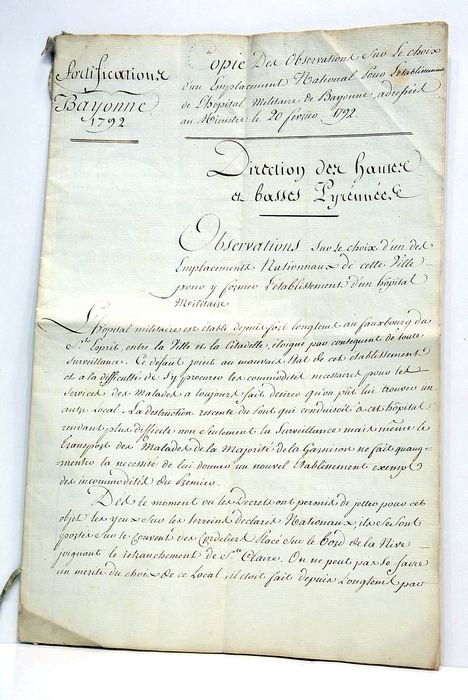 Fortifications
Bayonne
1792
Copie Des Observations Sur Le choix
d'un Emplacement National Pour l'etablissement
de l'hôpital Militaire de Bayonne, adressées
au Ministre le 20 fevrier 1792.
Direction des hautes
et basses Pyrennées
Observations Sur le choix d'un des
Emplacements Nationnaux de cette Ville
pour y former l'etablissement d'un hôpital
Militaire
L'hôpital militaire est établi depuis fort longtems au fauxbourg du
St. Esprit, entre la Ville et la Citadelle, éloigné par consequent de toute
Surveillance. Ce defaut joint au mauvais état de cet établissement
et a la difficulté de S'y procurer les commodités necessaires pour les
Services des Malades a toujours fait desirer qu'on put lui trouver un
autre Local. La destruction recente du Pont qui conduisoit a cet hôpital
rendant plus difficile non seulement la Surveillance mais même le
transport des Malades de la Majorité de la Garnison ne fait qu'aug-
menter la necessité de lui donner un nouvel établissement exempt
des incommodités du Premier.
Dès le moment ou les Decrets ont permis de jetter pour cet
objet les yeux Sur les terreins declarés Nationaux, ils Se Sont
portés Sur le Couvent des Cordeliers Placé Sur le Bord de la Nive
joignant le retranchement de Ste. Claire. On ne peut pas Se faire
un merite du choix de ce Local, il étoit fait depuis Longtems par